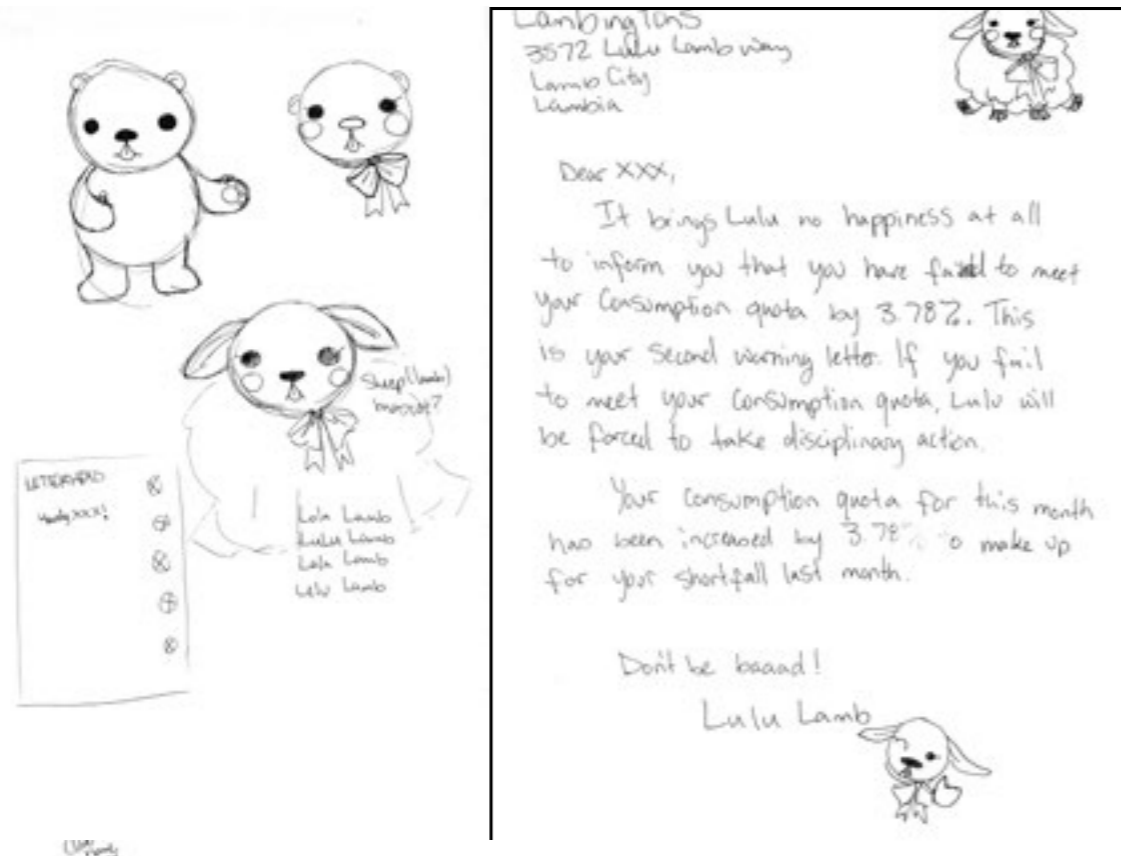 Sheep (lamb)
mascot?
LETTERHEAD
XXX!
Lola Lamb
Lulu Lamb
Lola Lamb
Lulu Lamb
Lambingtons
3572 Lulu Lamb way
Lamb City
Lambia
Dear XXX,
It brings Lulu no happiness at all
to inform you that you have failed to meet
your Consumption quota by 3.78%. This
is your Second warning letter. If you fail
to meet your Consumption quota, Lulu will
be forced to take disciplinary action.
Your Consumption quota for this month
has been increased by 3.78% to make up
for your shortfall last month.
Don't be baaad!
Lulu Lamb